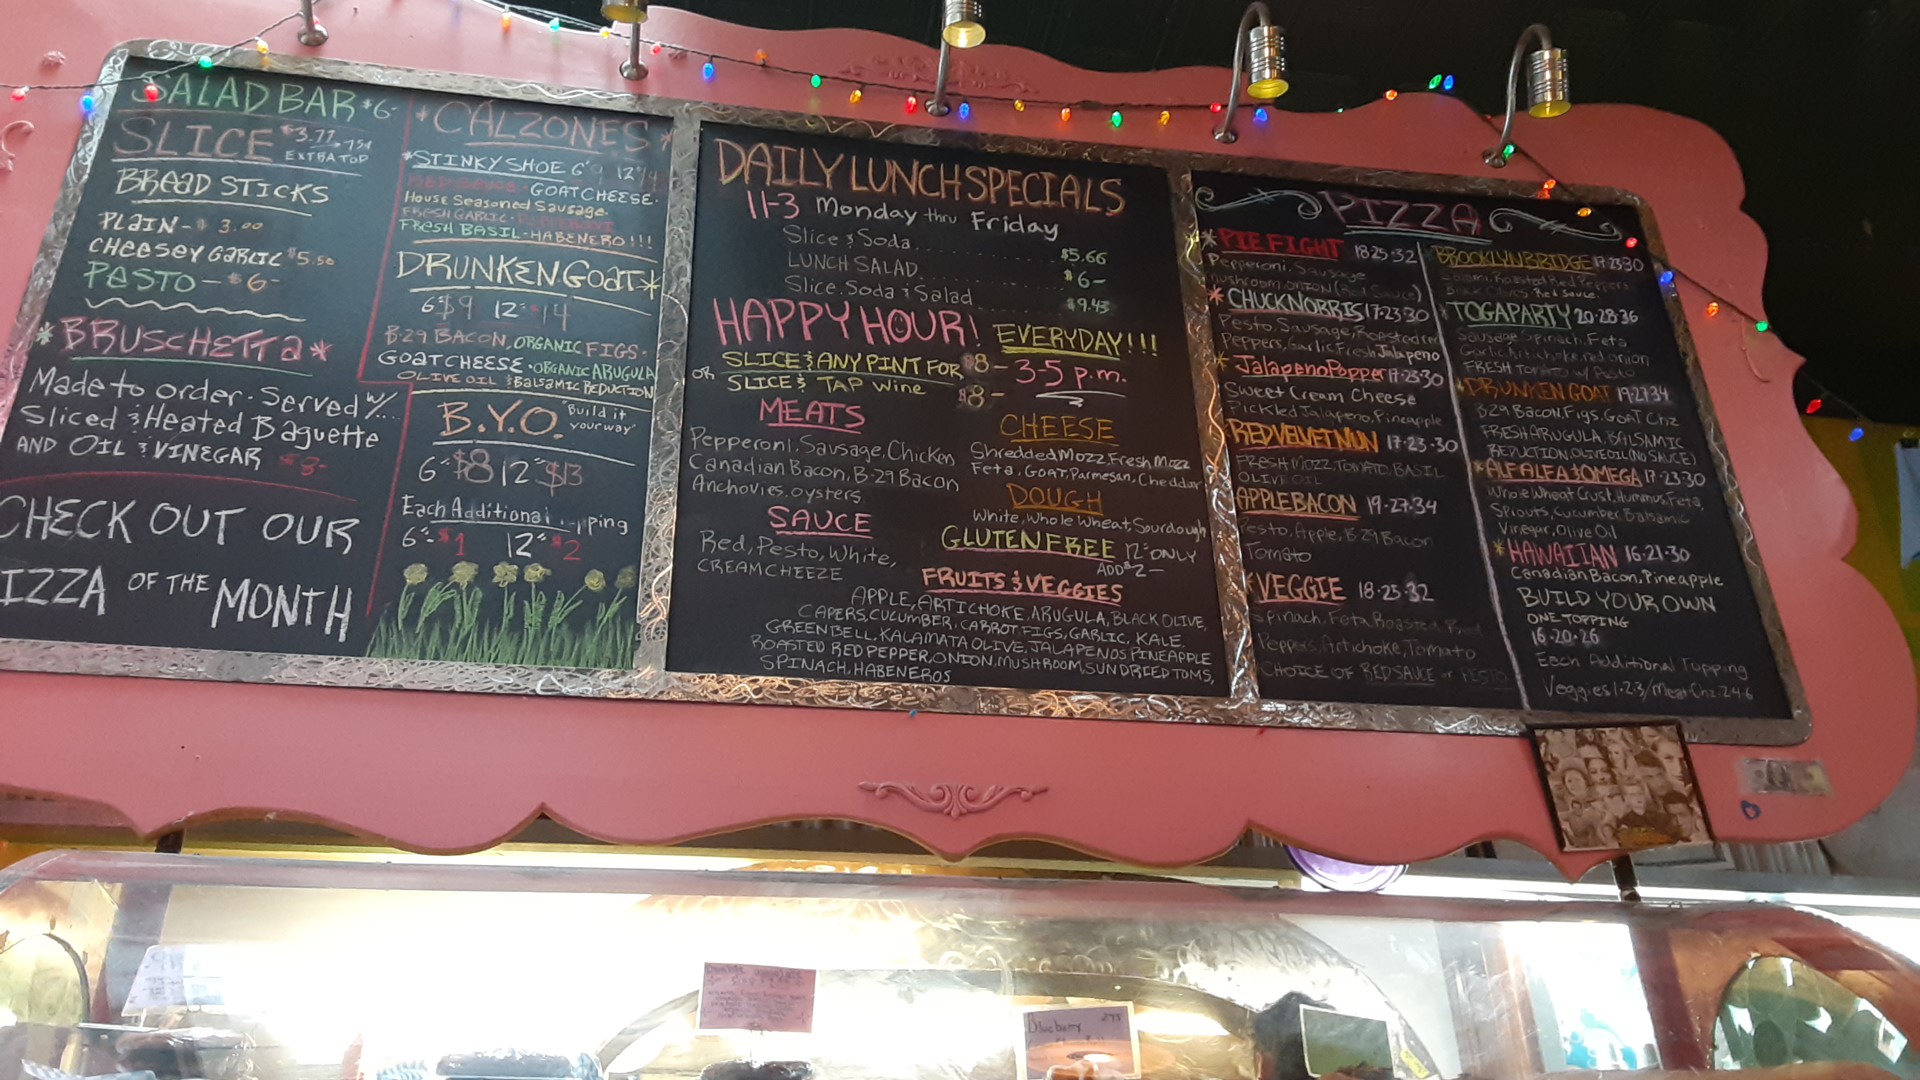 SALAD BAR $6-
SLICE $3.77
EXTRA TOP 75¢
BREAD STICKS
PLAIN - $3.00
CHEESEY GARLIC $5.50
PESTO - $6-
*BRUSCHETTA*
Made to order. Served w/...
Sliced & Heated Baguette
AND OIL & VINEGAR $8-
CHECK OUT OUR
PIZZA OF THE MONTH
*CALZONES*
*STINKY SHOE 6" 9 12" 14
GOAT CHEESE.
House Seasoned Sausage.
FRESH GARLIC.
FRESH BASIL. HABENERO!!!
DRUNKEN GOAT*
6" $9 12" $14
B-29 BACON, ORGANIC FIGS.
GOAT CHEESE. ORGANIC ARUGULA
OLIVE OIL & BALSAMIC REDUCTION
B.Y.O. "Build it your way"
6" $8 12" $13
Each Additional
6"- $1 12" $2
DAILY LUNCH SPECIALS
11-3 Monday thru Friday
Slice & Soda......... $5.66
LUNCH SALAD......... $6-
Slice, Soda & Salad......... $9.43
HAPPY HOUR! EVERYDAY!!!
SLICE & ANY PINT FOR $8- 3-5 p.m.
OR SLICE & TAP Wine $8-
MEATS
Pepperoni, Sausage, Chicken
Canadian Bacon, B-29 Bacon
Anchovies, oysters
SAUCE
Red, Pesto, White,
CREAM CHEEZE
CHEESE
Shredded Mozz, Fresh Mozz
Feta, GOAT, Parmesan, Cheddar
DOUGH
White, Whole Wheat, Sourdough
GLUTEN FREE 12" ONLY
ADD $2-
FRUITS & VEGGIES
APPLE, ARTICHOKE, ARUGULA, BLACK OLIVE,
CAPERS, CUCUMBER, CARROT, FIGS, GARLIC, KALE,
GREEN BELL, KALAMATA OLIVE, JALAPENOS, PINEAPPLE
ROASTED RED PEPPER, ONION, MUSHROOM, SUNDRIED TOMS,
SPINACH, HABENEROS
PIZZA
*PIE FIGHT 18·25·32
Pepperoni, Sausage
Mushroom, ONION (Red Sauce)
*CHUCK NORRIS 17·23·30
Pesto, Sausage, Roasted red
Peppers, Garlic, Fresh Jalapeno
*Jalapeno Popper 17·23·30
Sweet Cream Cheese
Pickled Jalapeno, Pineapple
*RED VELVET NUN 17·23·30
FRESH MOZZ, TOMATO, BASIL
OLIVE OIL
APPLE BACON 19·27·34
Pesto, Apple, B-29 Bacon
Tomato
*VEGGIE 18·25·32
Spinach, Feta, Roasted Red
Peppers, Artichoke, Tomato
CHOICE OF RED SAUCE or PESTO
BROOKLYN BRIDGE 17·23·30
Salami, Roasted Red Peppers
Red Sauce.
TOGA PARTY 20·28·36
Sausage, Spinach, Feta
Garlic, Artichoke, red onion
FRESH Tomato w/ Pesto
*DRUNKEN GOAT 19·27·34
B·29 Bacon, Figs, Goat Chz
FRESH ARUGULA, BALSAMIC
REDUCTION, OLIVE OIL (NO SAUCE)
*ALFALFA & OMEGA 17·23·30
Whole Wheat Crust, Hummus, Feta,
Sprouts, Cucumber, Balsamic
Vinegar, Olive Oil
*HAWAIIAN 16·21·30
Canadian Bacon, Pineapple
BUILD YOUR OWN
ONE TOPPING
16·20·26
Each Additional Topping
Veggies 1·2·3/Meat·Chz 2·4·6
Blueberry